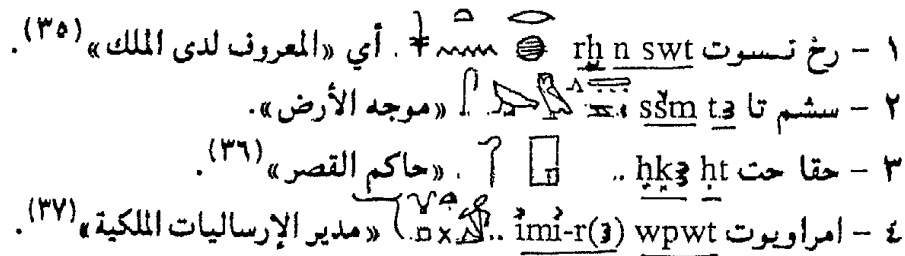 ١ - رخ نسوت rḫ n swt . أي «المعروف لدى الملك» (٣٥).
٢ - سشم تا sšm tȝ «موجه الأرض».
٣ - حقا حت ḥkȝ ḥt .. «حاكم القصر» (٣٦).
٤ - امراوبوت imi-r(ȝ) wpwt .. «مدير الإرساليات الملكية» (٣٧).